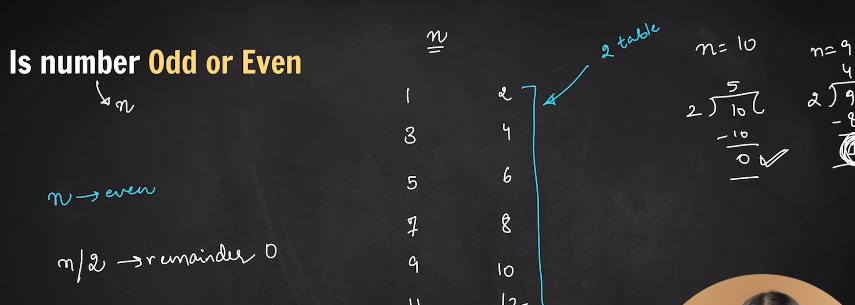 Is number Odd or Even
n
n → even
n/2 → remainder 0
n
1 2
3 4
5 6
7 8
9 10
11 12
2 table
n = 10
5
2 ) 10 (
-10
0 ✓
n = 9
4
2 ) 9
-8